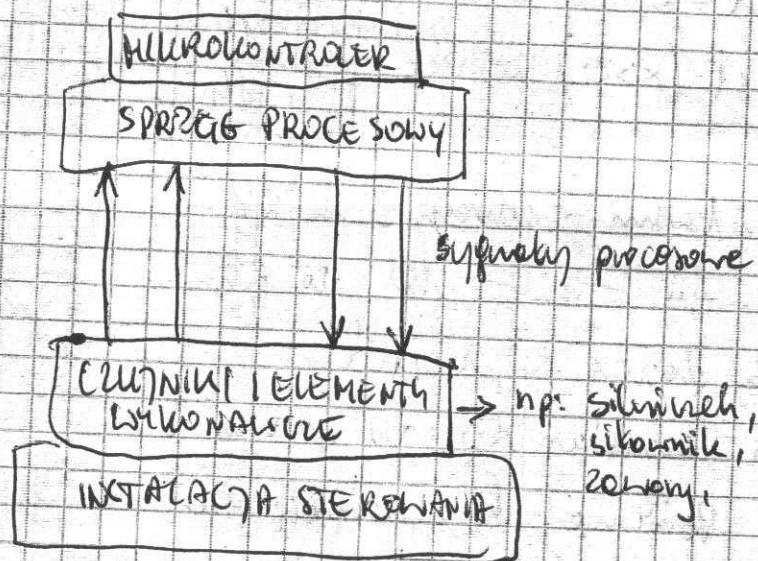 MIKROKONTROLER
SPRZĘG PROCESOWY
sygnały procesowe
CZUJNIKI I ELEMENTY
WYKONAWCZE
→ np. silniczek,
siłownik,
zawory,
INSTALACJA STEROWANIA